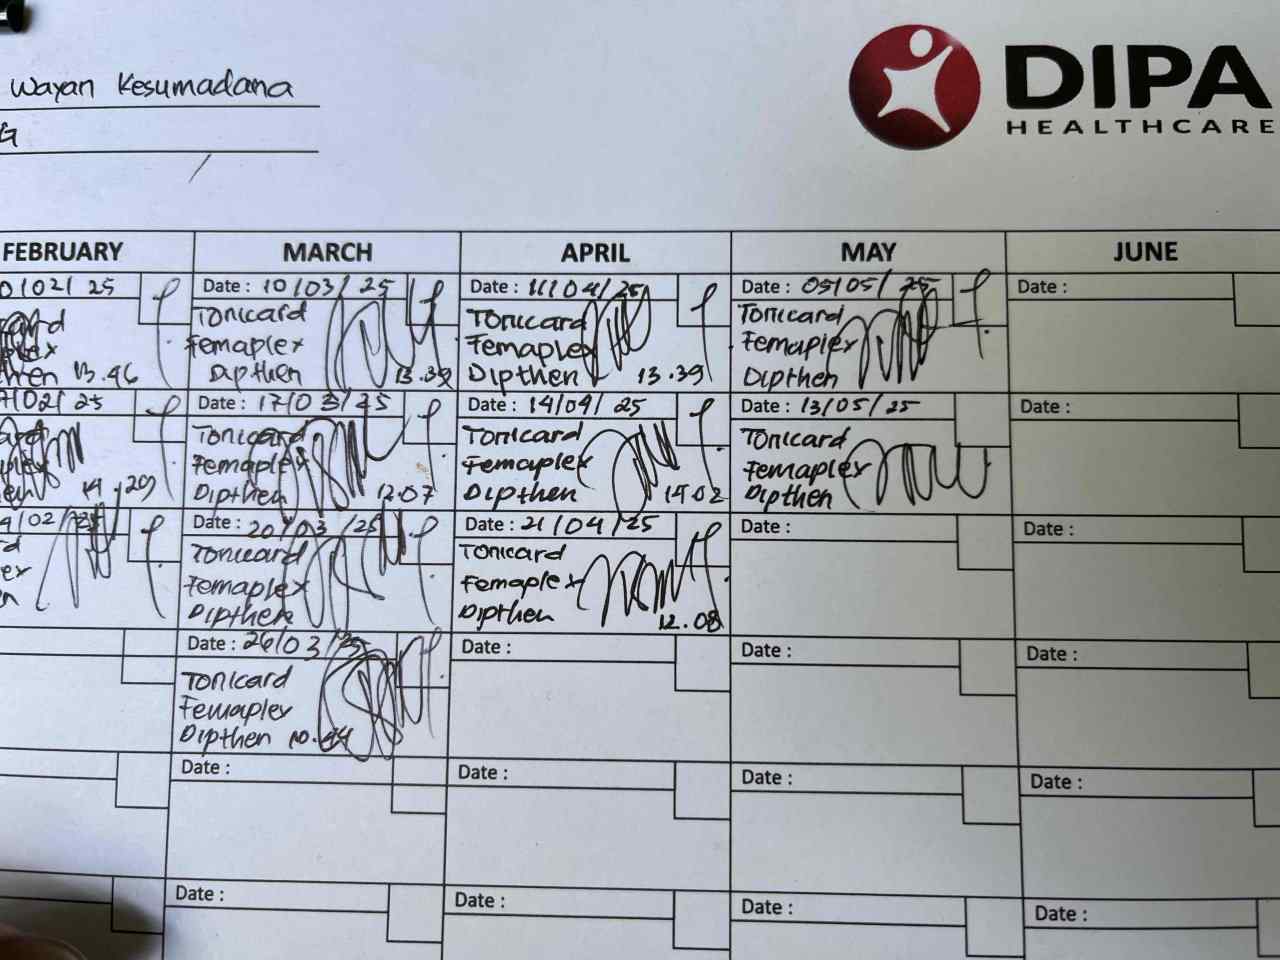 Wayan Kesumadana
G
DIPA
HEALTHCARE
FEBRUARY MARCH APRIL MAY JUNE
0/02/25
13.46
Date : 10/03/25
Tonicard
Femaplex
Dipthen 13.39
Date : 11/04/25
Tonicard
Femaplex
Dipthen 13.39
Date : 05/05/25
Tonicard
Femaplex
Dipthen
Date :
7/02/25
Date : 17/03/25
Tonicard
Femaplex
Dipthen 12.07
Date : 14/04/25
Tonicard
Femaplex
Dipthen 14.02
Date : 13/05/25
Tonicard
Femaplex
Dipthen
Date :
4/02/25
Date : 20/03/25
Tonicard
Femaplex
Dipthen
Date : 21/04/25
Tonicard
Femaplex
Dipthen 12.08
Date :
Date :
Date : 26/03/25
Tonicard
Femaplex
Dipthen 10.44
Date :
Date :
Date :
Date :
Date :
Date :
Date :
Date :
Date :
Date :
Date :